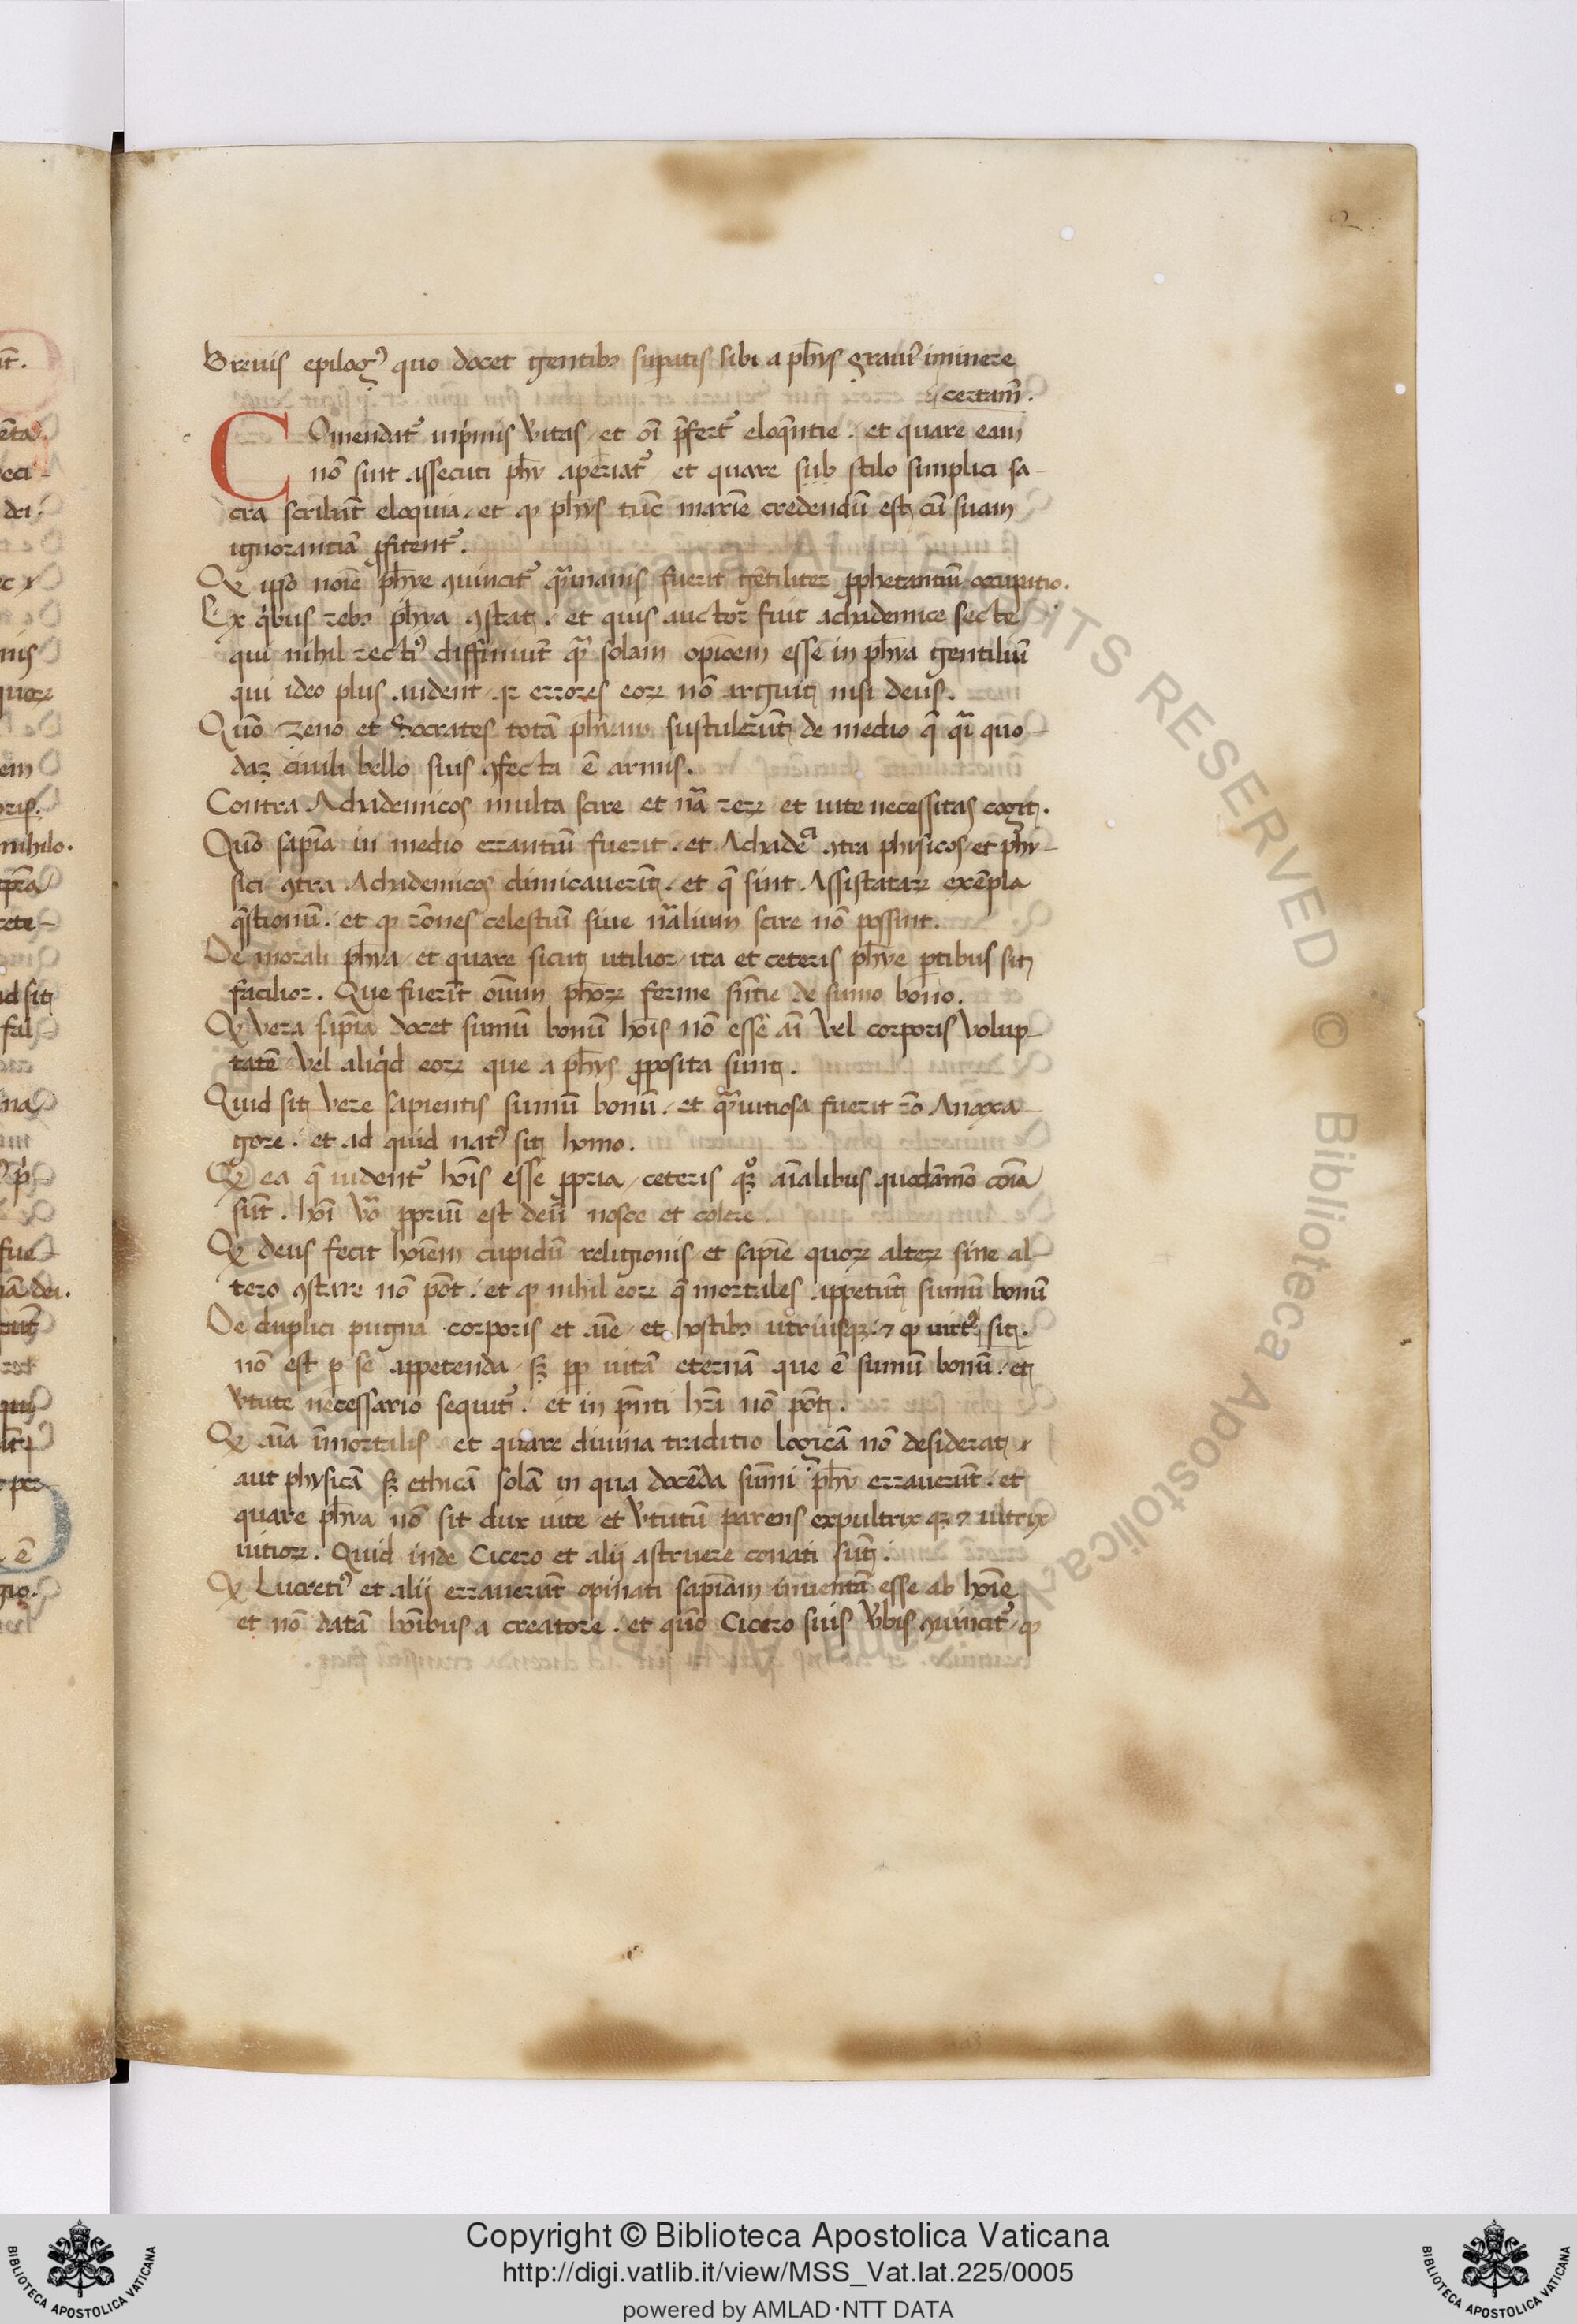 Breuis epilogꝰ quo docet gentibꝫ suꝑatis sibi a ph̄ys grauiꝰ iminere
certam̄.
COmendat᷑ inp̄mis v̓itas et oī p̄fert᷑ eloq̄ntie . et quare eam
nō sint assecuti ph̄y aperiat᷑ et quare sub stilo simplici sa-
cra scribūt eloquia . et ꝙ ph̄ys tūc maxīe credendū est cū suam
ignorantiā ꝓfitent᷑.
Qꝫ ipso noīe ph̄ye ꝯuincit᷑ qͣ̄ inanis fuerit gētiliter ꝓphetantiū occupatio.
Ex q̇bus rebꝫ ph̄ya ꝯstat . et quis auctor fuit achademice secte
qui nihil rectiꝰ diffiniuit qͣ̄ solam opīoem esse in ph̄ya gentiliū
qui ideo plus uident̄ qꝛ errores eoꝝ nō arguit nisi deus.
Quō Zeno et Socrates totā ph̄yam sustulerūt de medio q̄ qͣi quo-
daꝫ ciuili bello suis ꝯfecta ē armis.
Contra Achademicos multa scire et nāͣ reꝝ et uite necessitas cogit.
Quō sapīa in medio errantiū fuerit . et Achadēͣ ꝯtra physicos et phy-
sici ꝯtra Achademicos dimicauerīt . et q̄ sint Assistataꝝ exēpla
q̄stionū . et ꝙ rōnes celestiū siue nāͣlium scire nō possint.
De morali ph̄ya et quare sicut utilior ita et ceteris ph̄ye ꝑtibus sit
facilior . Que fuerīt oīum ph̄oꝝ ferme sn̄tie de sumo bono.
Qꝫ vera sapīa docet sumū bonū hōis nō esse aī vel corporis volup-
tatē vel aliq̇d eoꝝ que a ph̄ys ꝓposita sunt.
Quid sit vere sapientis sumū bonū . et qͣ̄ uitiosa fuerit rō Anaxa-
gore . et ad quid natꝰ sit homo.
Qꝫ ea q̄ uident᷑ hōis esse ꝓpria ceteris qͦꝫ aīalibus quodāmō cōia
sūt . hōi v̓o ꝓpriū est deū nosce et colere
Qꝫ deus fecit hoīem cupidū religionis et sapīe quoꝝ alteꝝ sine al-
tero ꝯstare nō pōt . et ꝙ nihil eoꝝ q̄ mortales appetūt sumū bonū
De duplici pugna corporis et aīe et hostibꝫ utriusqꝫ . ⁊ ꝙ uirtꝰ sit.
nō est ꝑ se appetenda sꝫ ꝓp uitā eternā que ē sumū bonū . et
v̓tute necessario sequit᷑ . et in pn̄ti hr̄i nō pōt.
Qꝫ aīa īmortalis et quare diuina traditio logicā nō desiderat
aut physicā sꝫ ethicā solā in qua docēda summi ph̄y errauerūt . et
quare ph̄ya nō sit dux uite et v̓tutū parens expultrix qꝫ ⁊ ultrix
uitioꝝ . Quid inde Cicero et alij astruere conati sūt.
Qꝫ Lucretiꝰ et alij errauerūt opinati sapīam inuentā esse ab hoīe
et nō datā hoībus a creatore . et quō Cicero suis v̓bis ꝯuincit᷑ ꝙ
Copyright © Biblioteca Apostolica Vaticana
http://digi.vatlib.it/view/MSS_Vat.lat.225/0005
powered by AMLAD·NTT DATA